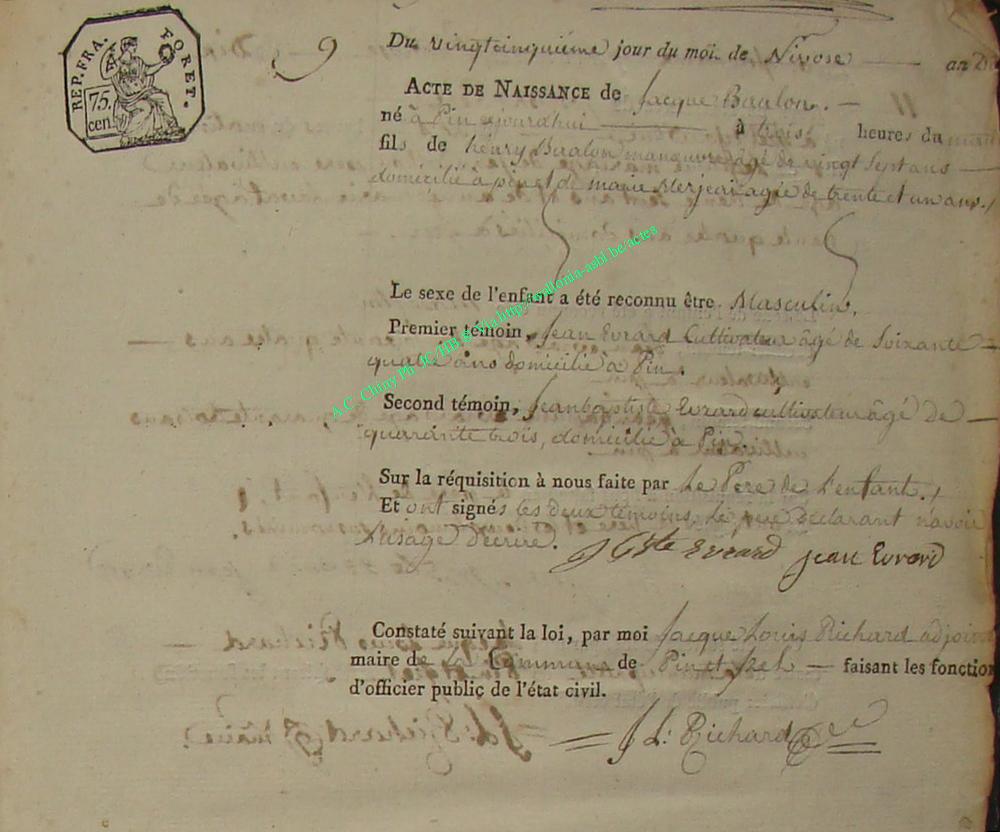 REP. FRA. FORET.
75.
cen.
9
Du vingtcinquieme jour du moi de Nivose — an
ACTE DE NAISSANCE de Jacque Baulon. —
né à Pin ajourdhui — à trois heures du
fils de henry Baalon manouvre âgé de vingt sept ans —
domicilié à pin et de marie Merjeai agée de trente et un ans.
Le sexe de l'enfant a été reconnu être Masculin.
Premier témoin, Jean Evrard Cultivateur âgé de Soixante —
quatre ans domicilié à Pin.
Second témoin, Jean baptiste Evrard cultivateur âgé de —
quarante trois, domicilie à Pin.
Sur la réquisition à nous faite par Le Pere de l'enfant.
Et ont signés les deux témoins, le pere declarant n'avoir
l'usage décrire. J Bste Evrard jean Evrard
Constaté suivant la loi, par moi Jacque Louis Richard adjoint
maire de la Commune de Pin et Izel — faisant les fonction
d'officier public de l'état civil.
J L: Richard
A.C. Chiny Ph JC/HB & Via http://wallonia-asbl.be/actes